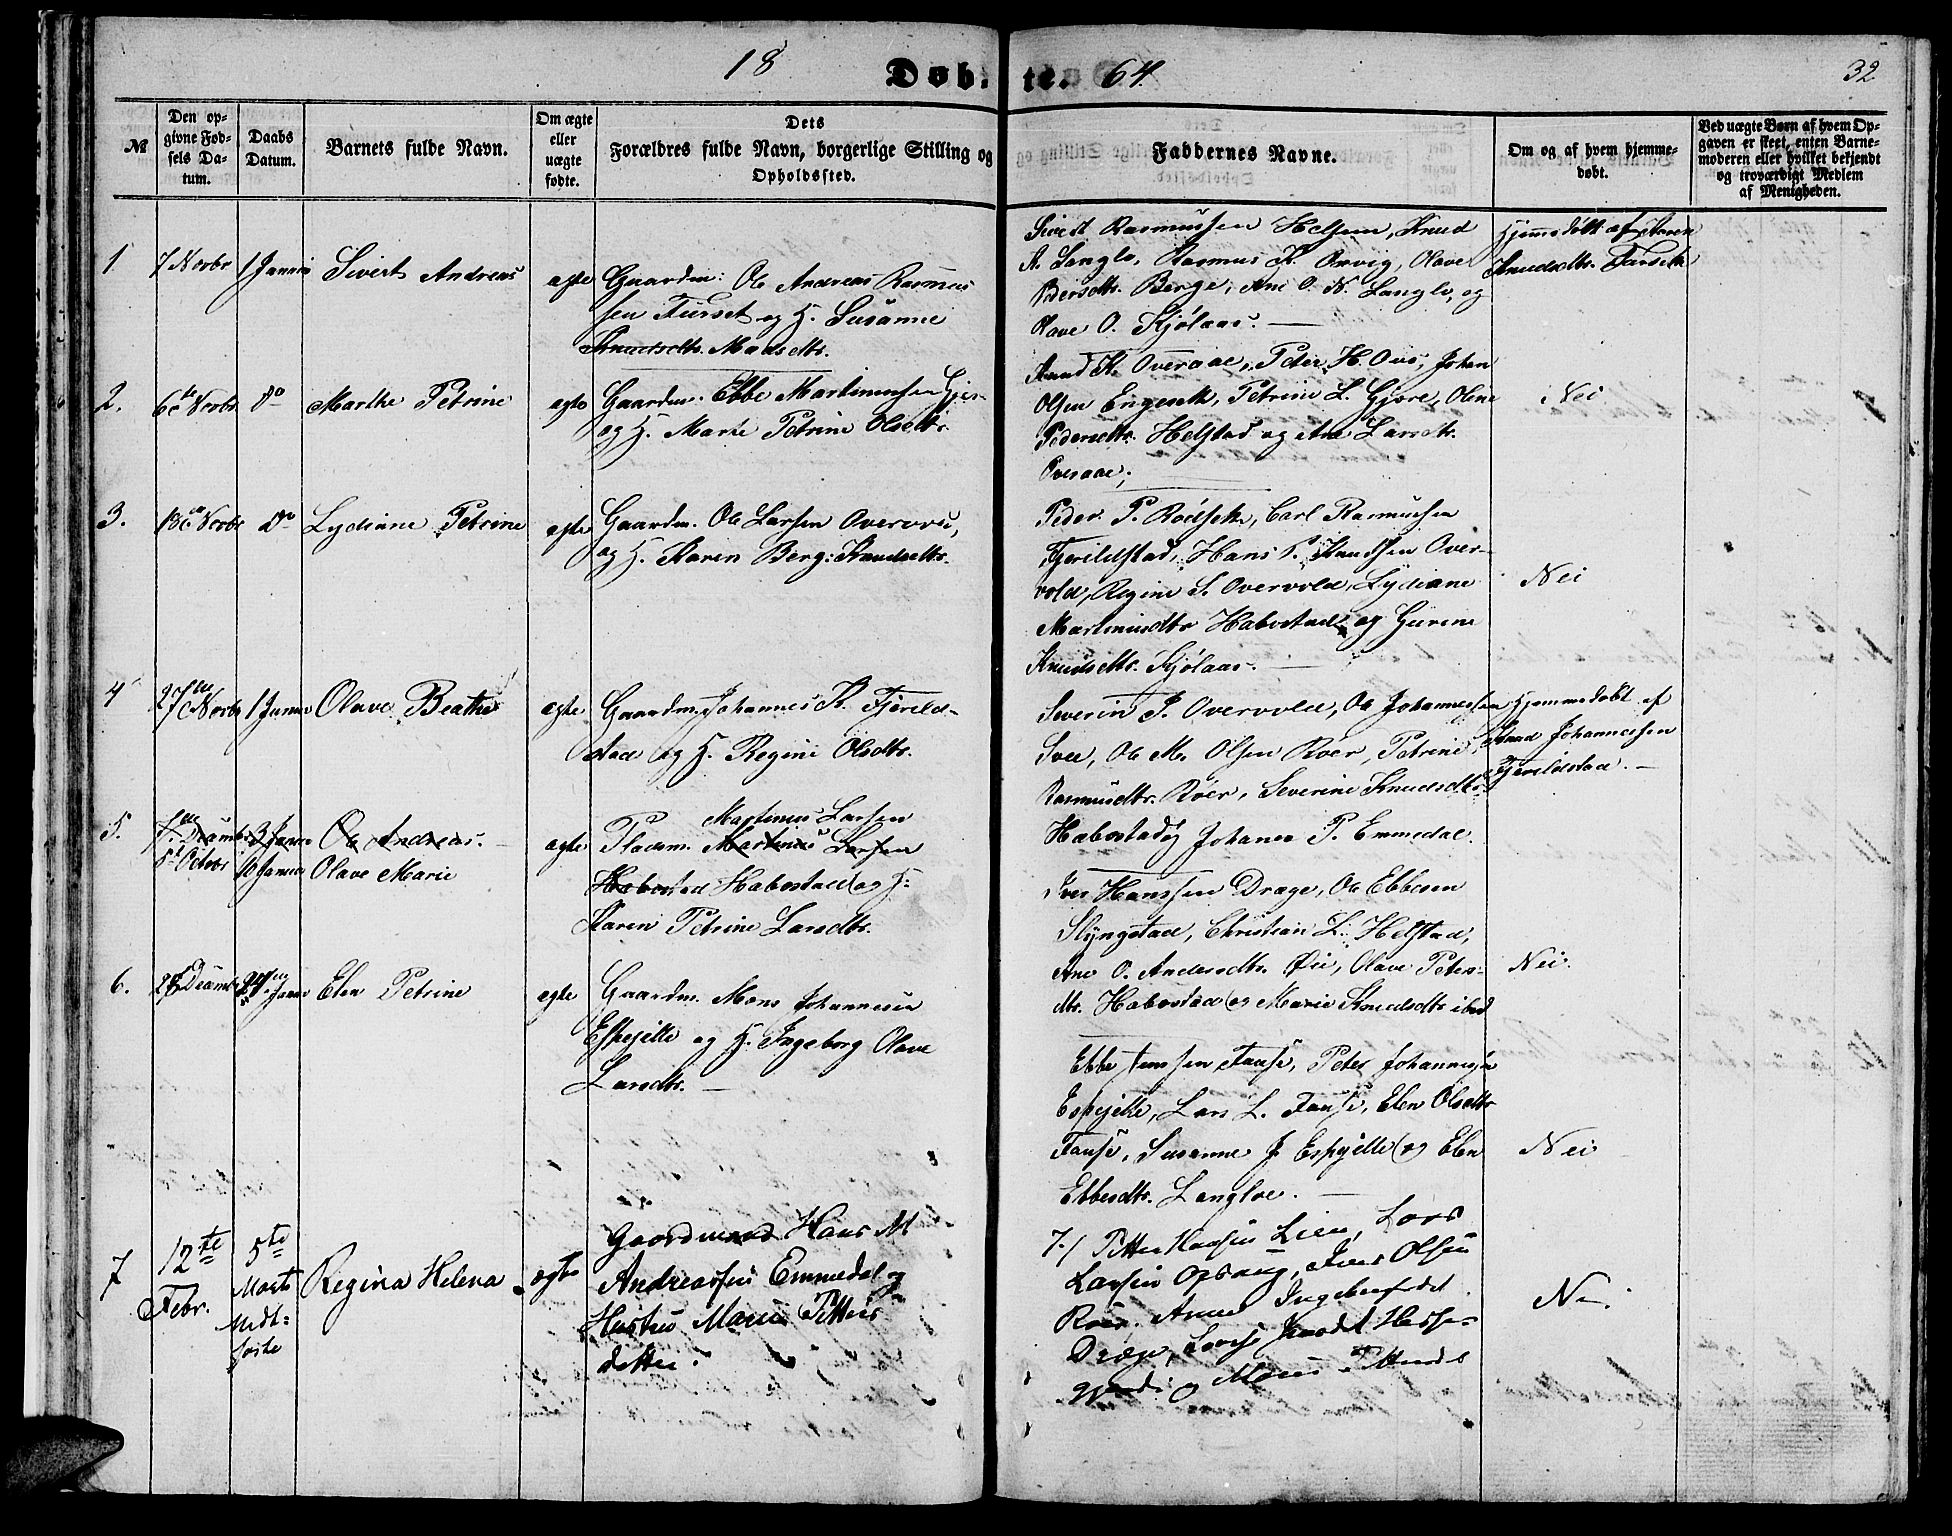 18 Døbte. 64. 32
№
Den opgivne Fødsels Datum.
Daabs Datum.
Barnets fulde Navn.
Om ægte eller uægte fødte.
Dets Forældres fulde Navn, borgerlige Stilling og Opholdssted.
Faddernes Navne.
Om og af hvem hjemmedøbt.
Ved uægte Børn af hvem Opgaven er skeet, enten Barnemoderen eller hvilket bekjendt og troværdigt Medlem af Menigheden.
1 7 Novbr 1 Januar Sivert Andreas ægte Gaardm: Ole Andreas Rasmus
sen Furset og H. Susanne
Knudsdtr. Madsdtr.
Sivert Rasmussen Helsem, Knud
A. Langlo, Rasmus K. Ørvig, Olave
Pedersdtr. Berge, Ane O. N. Langlo, og
Olave O. Kjølaas. —
Hjemmedøbt af Karen
Knudsdtr. Furseth
2. 6te Novbr do Marthe Petrine ægte Gaardm. Ebbe Martinussen Gjær
og H. Marte Petrine Olsdtr.
Knud K. Overaae, Peter H. Ous, Johan
Olsen Engeseth, Petrine L. Gjære, Oline
Pedersdtr. Helstad og Ane Larsdtr.
Overaae;
Nei
3. 18de Novbr do Lydiane Petrine ægte Gaardm. Ole Larsen Overvold,
og H. Karen Berg: Knudsdtr.
Peder P. Rødseth, Carl Rasmussen
Fjerildstad, Hans P. Knudssen Over-
vold, Regine S. Overvold, Lydiane
Martinusdtr Habostad og Gurine
Knudsdtr. Kjølaas. —
Nei
4 27de Novbr 1 Januar Olave Beathe ægte Gaardm. Johannes K. Fjerild-
stad og H. Regine Olsdtr.
Severin P. Overvold, Ole Johannessen
Svee, Ole M. Olsen Røer, Petrine
Rasmusdtr. Røer, Severine Knudsdtr.
Habostad og Johane P. Emmedal.
Hjemmedøbt af
Knud Johannessen
Fjerildstad. —
5. 7de Decembr 3 Januar Ole Andreas.
5te Octobr 10 Januar Olave Marie ægte Pladsm. Martinus Larsen
Martinus Larsen
Habostad Habostad og H.
Karen Petrine Larsdtr.
Iver Hanssen Drage, Ole Ebbesen
Slyngstad, Christian L. Helstad,
Ane O. Andersdtr. Øie, Olave Peters-
dtr. Habostad og Marie Knudsdtr ibid
Nei.
6. 28 Decembr 24 Januar Elen Petrine ægte Gaardm. Mons Johannesen
Espejelle og H. Ingeborg Olave
Larsdtr. —
Ebbe Jenssen Tause, Peter Johannesen
Espejelle, Lars L. Tause, Elen Olsdtr
Tause, Susanne J. Espejelle og Elen
Ebbesdtr. Langloe. —
Nei
7 12te Febr. 5te Marts Midt=
faste
Regina Helena ægte Gaardmand Hans M
Andreassen Emmedal og
Hustru Marie Petters
datter.
7./ Petter Hansen Lien, Lars
Larsen Opsaug, Iver Olsen
Røer. Anne Ingebr.
Drage, Lovise Hessen
og Marie Pettersd
Nei.